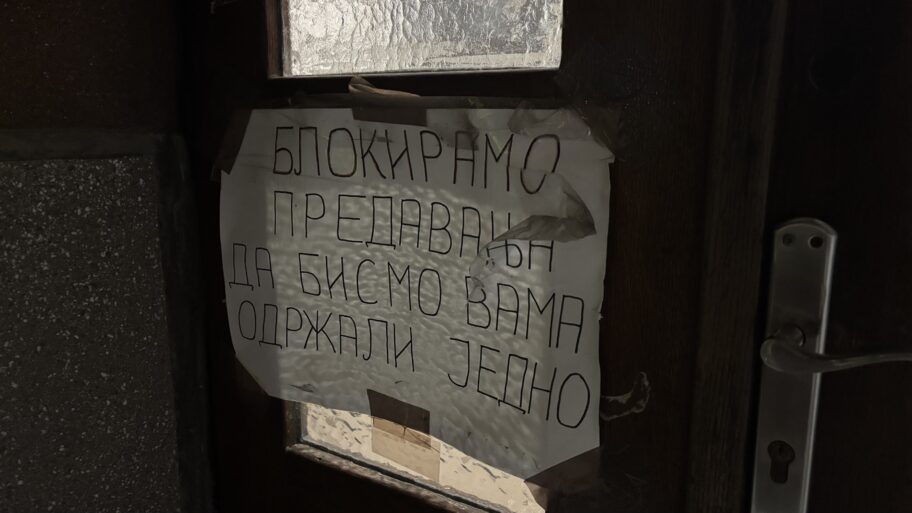 БЛОКИРАМО
ПРЕДАВАЊА
ДА БИСМО ВАМА
ОДРЖАЛИ ЈЕДНО